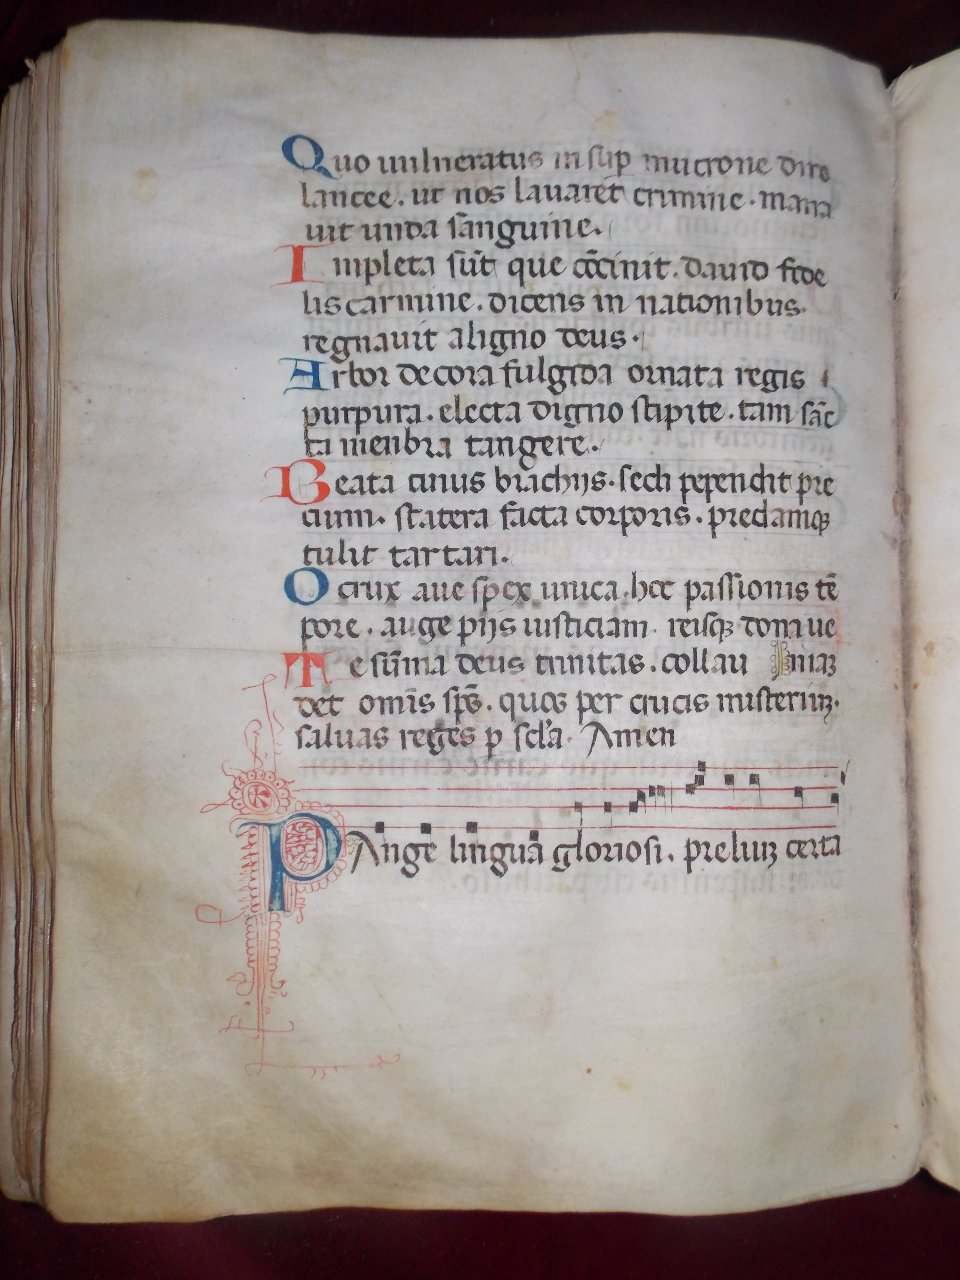 Quo uulneratus insuꝑ mucrone diro
lancee. ut nos lauaret crimine. mana
uit unda sāguine.
Impleta sūt que cōcinit. dauid fide
lis carmine. dicens in nationibus.
regnauit aligno deus.
Arbor decora fulgida ornata regis
purpura. electa digno stipite. tam sāc
ta menbra tangere.
Beata cuius brachijs. secli pependit pre
cium. statera facta corporis. predamqꝫ
tulit tartari.
O crux aue spex unica. hec passionis tē
pore. auge pijs iusticiam. reisqꝫ dona ue
Te sūma deus trinitas. collau niaꝫ
det omīs sp̄s. quos per crucis misteriūꝫ.
saluas reges ꝑ sc̄la. Amen
PAnge linguā gloriosi. preliuꝫ certa